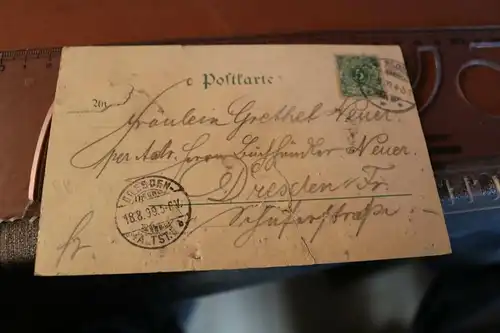 Postkarte
An
Fräulein Grethel Neuer.
per Adr. Herrn Buchhändler Neuer.
Dresden Fr.
Schäferstraße
fr.
DRESDEN-
18.8.99. 5-6 N.
ALTST.
5